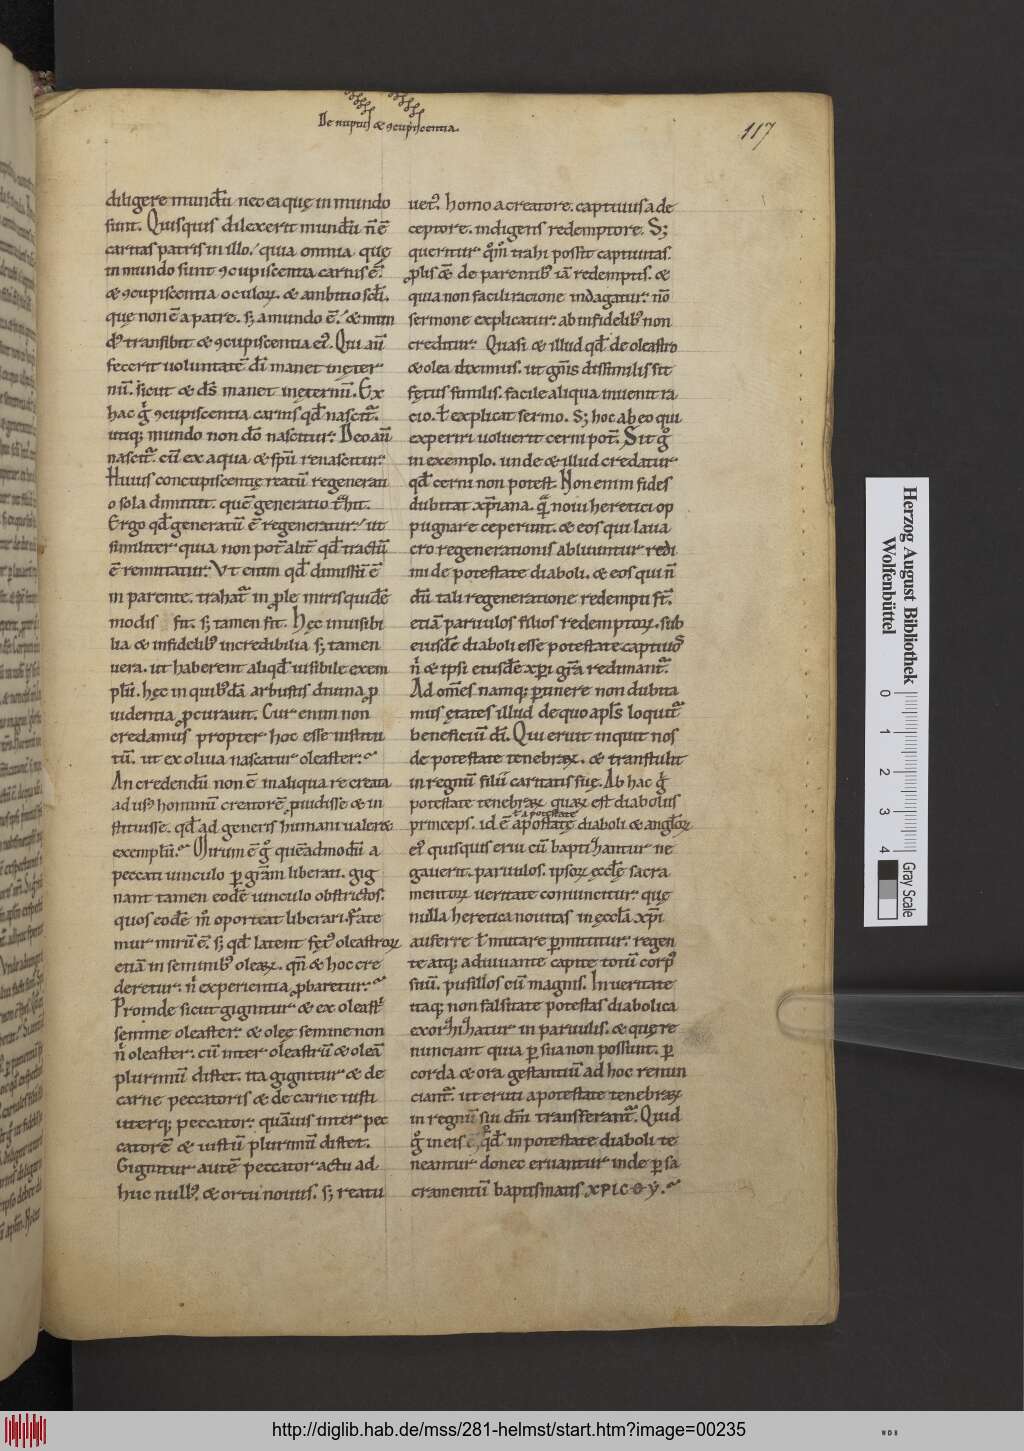 De nuptiis & ꝯcupiscentia.
117
diligere mundū nec ea quę in mundo
sunt. Quisquis dilexerit mundū ñ ē
caritas patris in illo. quia omnia quę
in mundo sunt ꝯcupiscentia carnis ē.
& ꝯcupiscentia oculoꝝ. & ambitio sc̄li.
quę non ē a patre. sꝫ a mundo ē. & mun
dꝰ transibit & ꝯcupiscentia eiꝰ. Qui aū
fecerit uoluntatē dī manet in ęter
nū. sicut & ds̄ manet in ęternū. Ex
hac g̊ ꝯcupiscentia carnis qd̄ nascit᷑.
utiqꝫ mundo non dō nascitur. Deo aū
nascit᷑. cū ex aqua & spū renascitur.
Huius concupiscentię reatū regenerati
o sola dimittit. quē generatio t̄hit.
Ergo qd̄ generatū ē regeneratur. ut
similiter quia non pot̄ alit̄ qd̄ tractū
ē remittatur. Vt enim qd̄ dimissū ē
in parente. trahat᷑ in ꝓle miris quidē
modis fit. sꝫ tamen fit. Hęc inuisibi
lia & infidelibꝰ incredibilia sꝫ tamen
uera. ut haberent aliqd̄ uisibile exem
plū. hęc in quibꝰdā arbustis diuina ꝓ
uidentia ꝓcurauit. Cur enim non
credamus propter hoc esse institu
tū. ut ex oliua nascatur oleaster.
An credendū non ē in aliqua re creata
ad usꝰ hominū creatorē ꝓuidisse & in
stituisse. qd̄ ad generis humani ualeret
exemplū. Mirum ē g̊ quēadmodū a
peccati uinculo ꝑ grām liberati. gig
nant tamen eodē uinculo obstrictos.
quos eodē m̊ oporteat liberari. Fate
mur mirū ē. sꝫ qd̄ latent fęt᷒ oleastroꝝ
etiā in seminibꝰ oleaꝝ. qn̄ & hoc cre
deretur. n̊ experientia ꝓbaretur.
Proinde sicut gignitur & ex oleast̄i
semine oleaster. & olęę semine non
n̊ oleaster. cū inter oleastrū & oleā
plurimū distet. ita gignitur & de
carne peccatoris & de carne iusti
uterqꝫ peccator. quāuis inter pec
catorē & iustū plurimū distet.
Gignitur autē peccator actu ad
huc nullꝰ. & ortu nouus. sꝫ reatu
uetꝰ. homo a creatore. captiuus a de
ceptore. indigens redemptore. Sꝫ
queritur qm̊ trahi possit captiuitas.
ꝓlis & de parentibꝰ iā redemptis. &
quia non facili ratione indagatur. nō
sermone explicatur. ab infidelibꝰ non
creditur. Quasi & illud qd̄ de oleastro
& olea diximus. ut gn̄is dissimilis sit
fętus similis. facile aliqua inuenit ra
cio. ł explicat sermo. Sꝫ hoc ab eo qui
experiri uoluerit cerni pot̄. Sit g̊
in exemplo. unde & illud credatur
qd̄ cerni non potest. Non enim fides
dubitat xp̄iana. q̄ noui heretici op
pugnare ceperunt. & eos qui laua
cro regenerationis abluuntur redi
mi de potestate diaboli. & eos qui ñ
dū tali regeneratione redempti st̄.
etiā paruulos filios redemptoꝝ. sub
eiusdē diaboli esse potestate captiuos
n̊ & ipsi eiusdē xp̄i grā redimant᷑.
Ad omēs namqꝫ ꝑtinere non dubita
mus ętates illud de quo apl̄s loquit᷑
beneficiū dī. Qui eruit inquit nos
de potestate tenebraꝝ. & transtulit
in regnū filii caritatis suę. Ab hac g̊
potestate tenebraꝝ quaꝝ est diabolus
princeps. id ē a potestatę diaboli & angłoꝝ
ł a potestate
eiꝰ quisquis erui cū baptihantur ne
gauerit. paruulos. ipsoꝝ ęcclę sacra
mentoꝝ ueritate conuincitur. quę
nulla heretica nouitas in ęcclā xp̄i
auferre ł mutare ꝑmittitur. regen
te atqꝫ adiuuante capite totū corpꝰ
suū. pusillos cū magnis. In ueritate
itaqꝫ non falsitate potestas diabolica
exorhihatur in paruulis. & quę re
nunciant quia ꝑ sua non possunt. ꝑ
corda & ora gestantiū ad hoc renun
ciant᷑. ut eruti a potestate tenebraꝝ
in regnū sui dn̄i transferant᷑. Quid
g̊ in eis ē qd̄ in potestate diaboli te
neantur donec eruantur inde ꝑ sa
cramentū baptismatis xpicoy.
Herzog August Bibliothek
Wolfenbüttel
0 1 2 3 4
Gray Scale
http://diglib.hab.de/mss/281-helmst/start.htm?image=00235
WDB